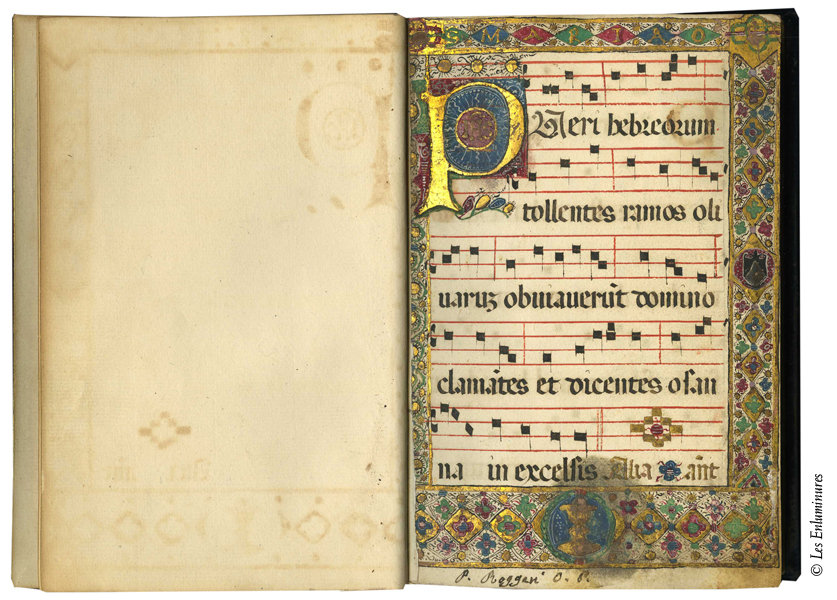 PUeri hebreorum
tollentes ramos oli
uaruz obuiauerũt domino
clamãtes et dicentes osan
na in excelsis Alia ãnt
© Les Enluminures